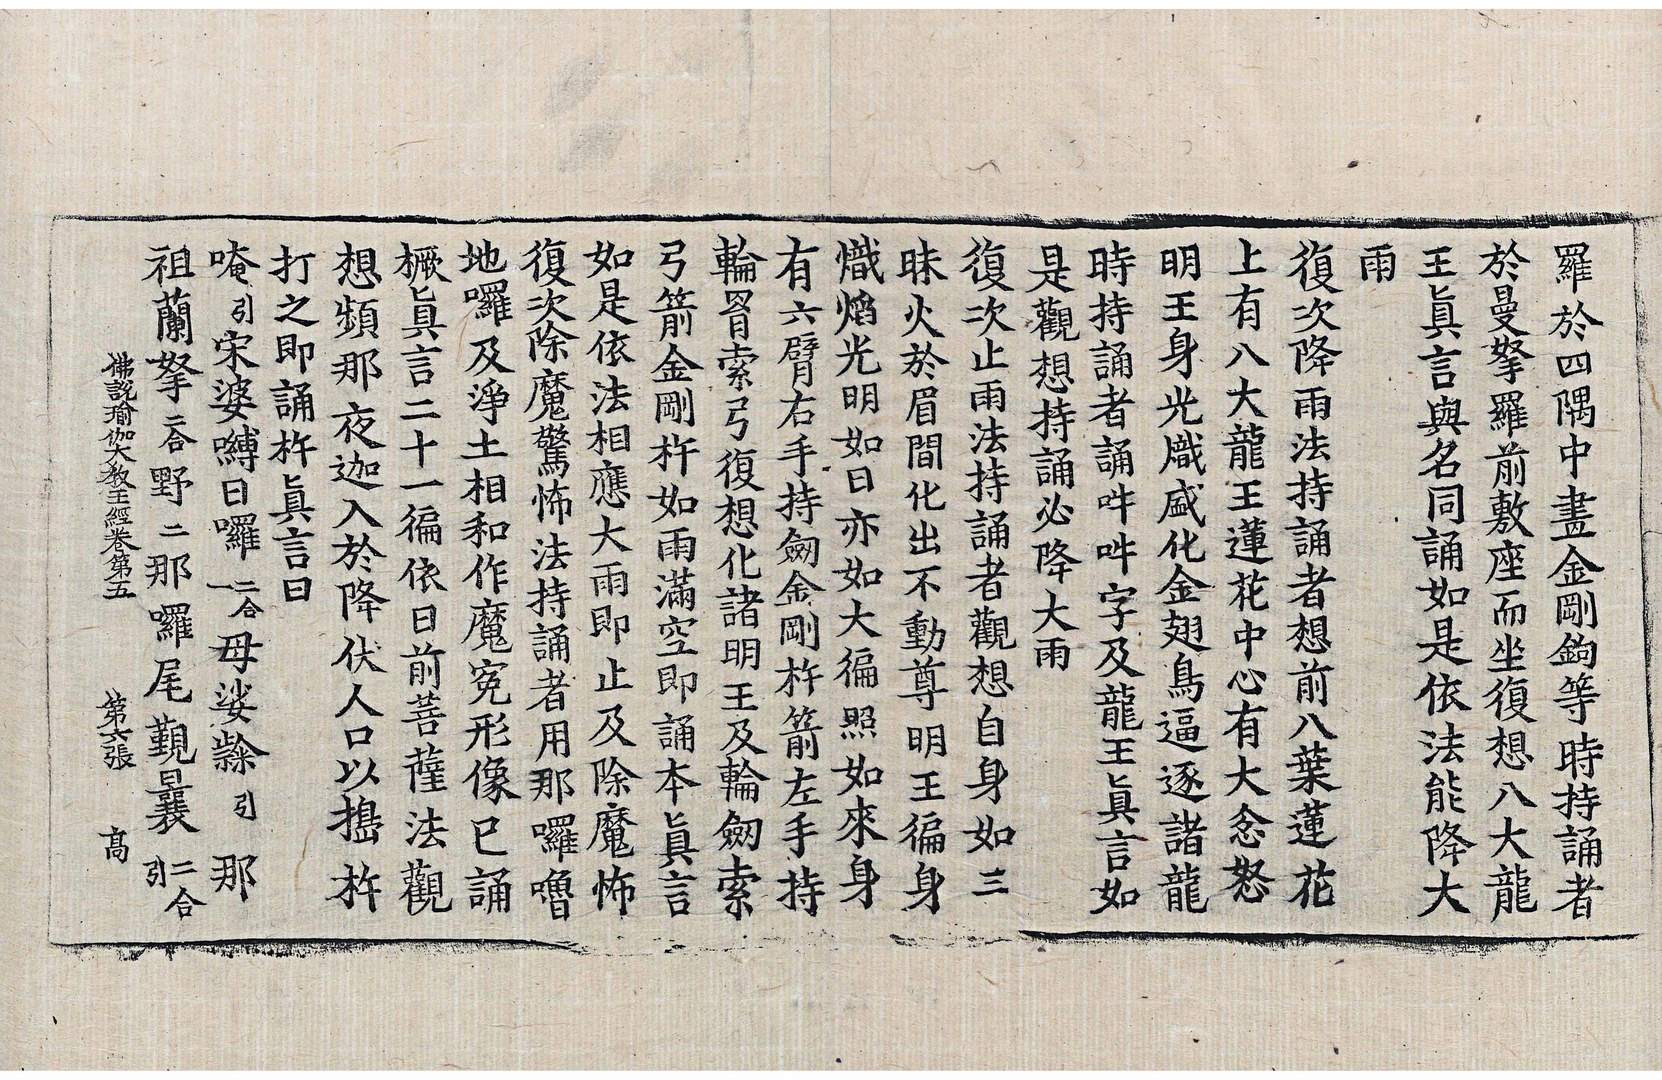 羅於四隅中畫金剛鉤等時持誦者
於曼拏羅前敷座而坐復想八大龍
王眞言與名同誦如是依法能降大
雨
復次降雨法持誦者想前八葉蓮花
上有八大龍王蓮花中心有大忿怒
明王身光熾盛化金翅鳥逼逐諸龍
時持誦者誦吽吽字及龍王眞言如
是觀想持誦必降大雨
復次止雨法持誦者觀想自身如三
昧火於眉間化出不動尊明王徧身
熾焰光明如日亦如大徧照如來身
有六臂右手持劒金剛杵箭左手持
輪罥索弓復想化諸明王及輪劒索
弓箭金剛杵如雨滿空即誦本眞言
如是依法相應大雨即止及除魔怖
復次除魔驚怖法持誦者用那囉嚕
地囉及淨土相和作魔寃形像已誦
橛眞言二十一徧依日前菩薩法觀
想頻那夜迦入於降伏人口以搗杵
打之即誦杵眞言曰
唵引宋婆嚩日囉二合一母娑𪐴引那
祖蘭拏二合野二那囉尾覲曩二合引
佛說瑜伽大教王經卷第五 第六張 髙